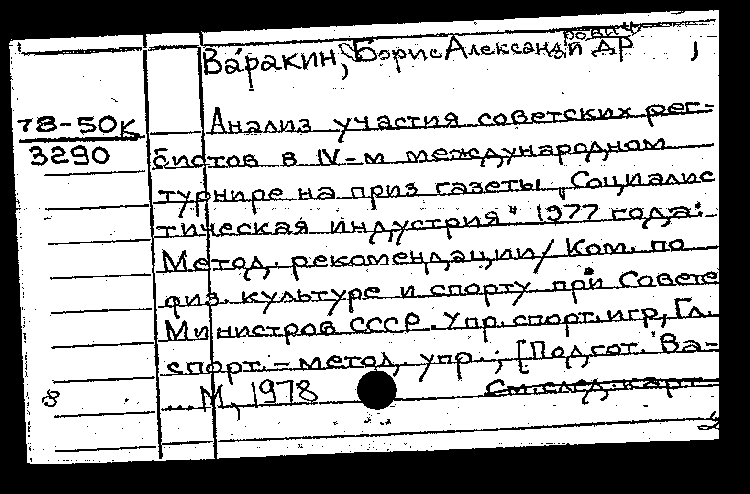 рович
Варакин, Борис Александр
78-50к
3290
Анализ участия советских рег-
бистов в IV-м международном
турнире на приз газеты „Социалис
тическая индустрия" 1977 года:
Метод. рекомендации/ Ком. по
физ. культуре и спорту при Совете
Министров СССР. Упр. спорт. игр, Гл.
спорт. - метод. упр.; [Подгот. Ва-
8 ... М, 1978 См. след. карт.